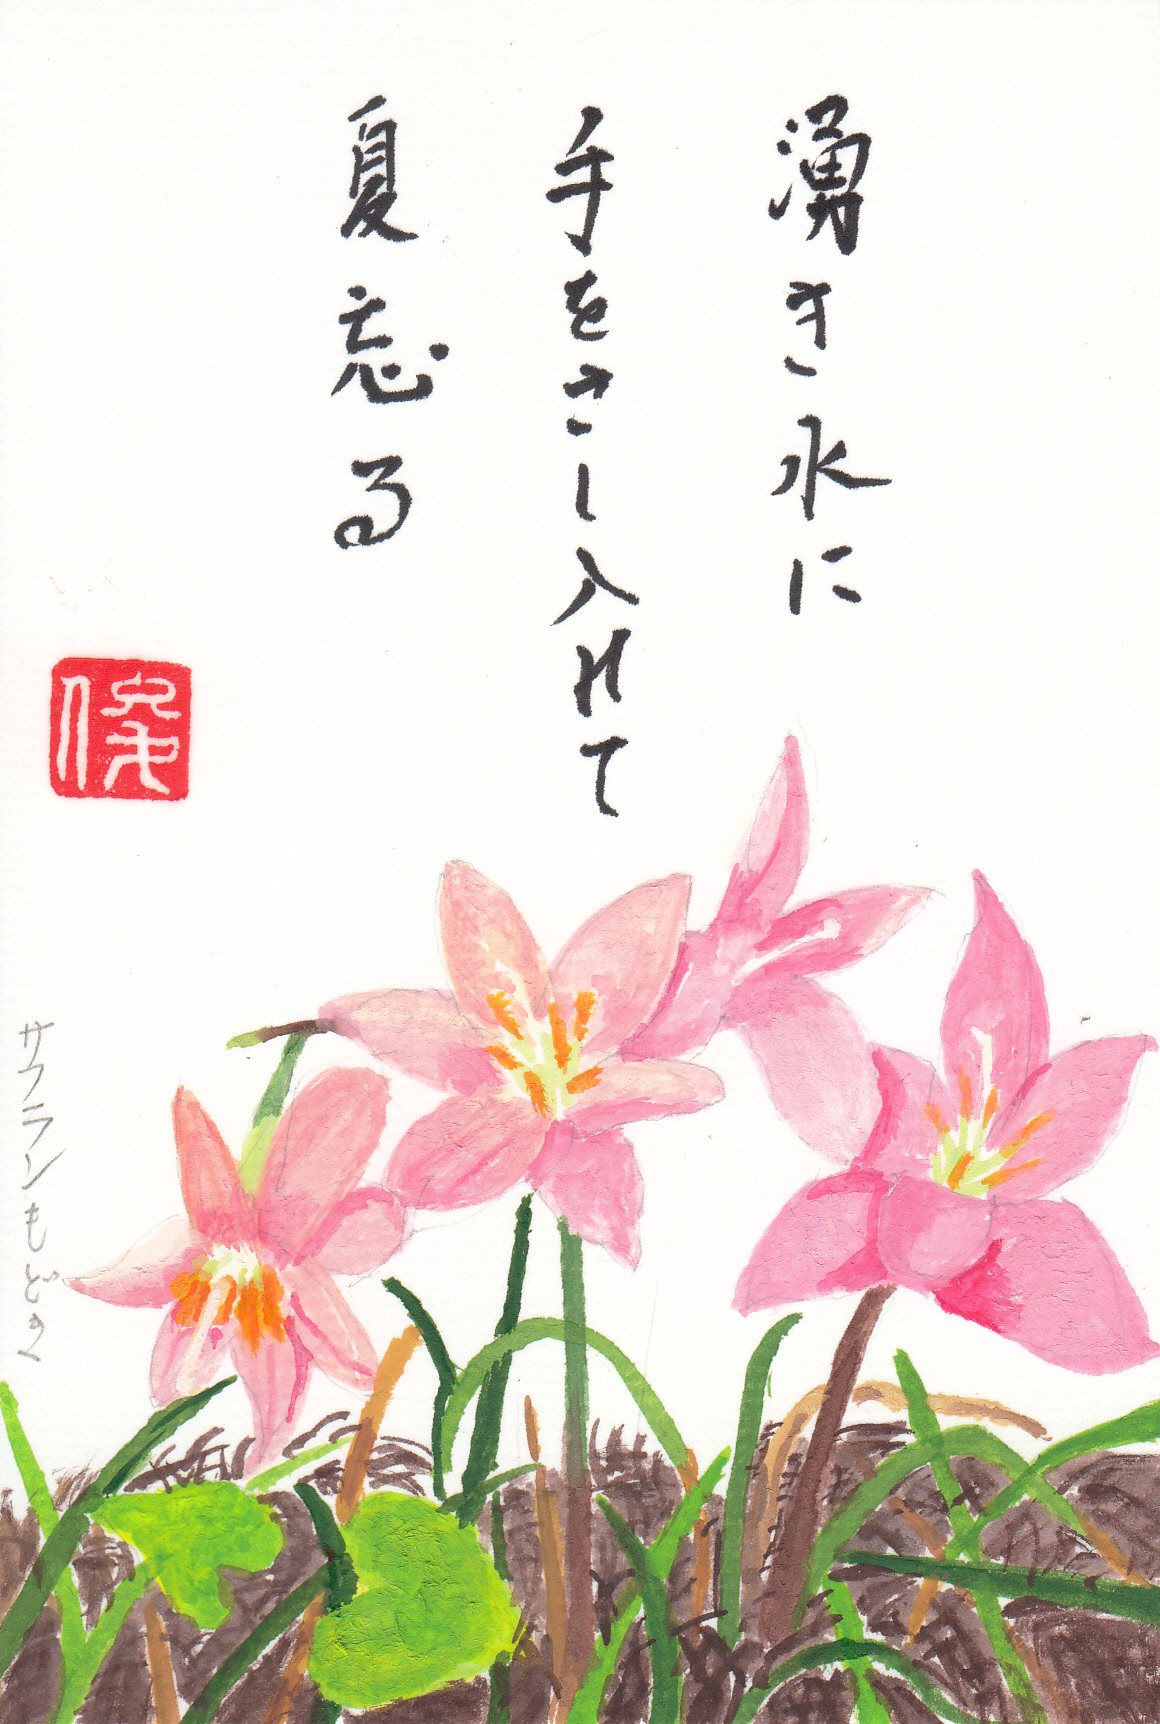 湧き水に
手をさし入れて
夏忘る
俊
サフランもどき